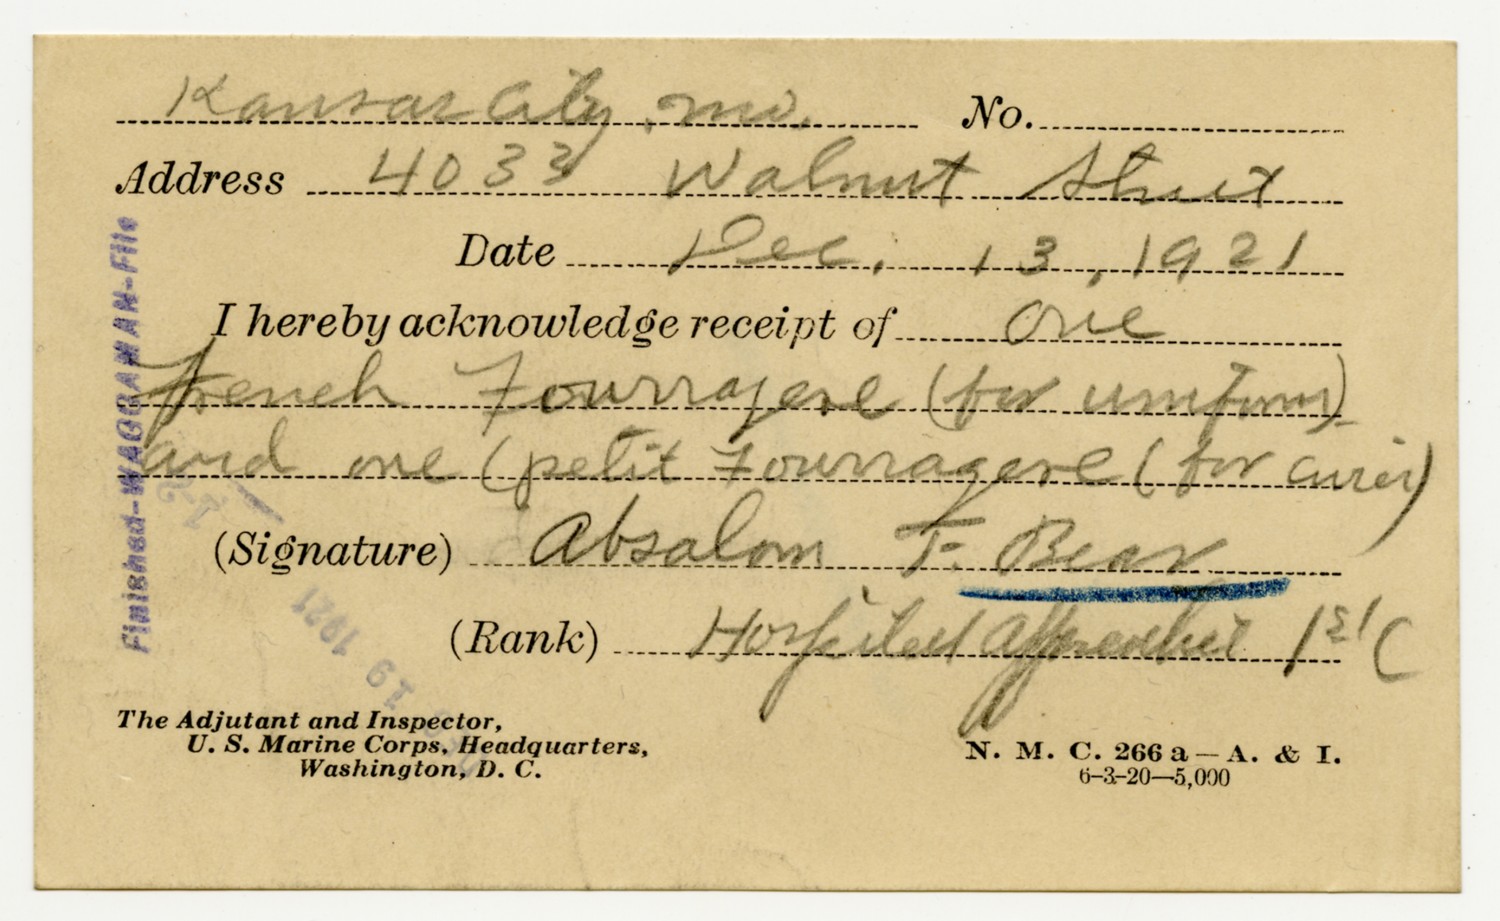 Kansas City, Mo. No.
Address 4033 Walnut Street
Date Dec. 13, 1921
I hereby acknowledge receipt of one
French Fourragere (for uniform)
and one (petit Fourragere (for civies)
(Signature) Absalom F. Bear
(Rank) Hospital Apprentice 1st C
The Adjutant and Inspector,
U. S. Marine Corps, Headquarters,
Washington, D. C.
N. M. C. 266 a—A. & I.
6-3-20—5,000
Finished-WAGGAMAN-File
19 1921